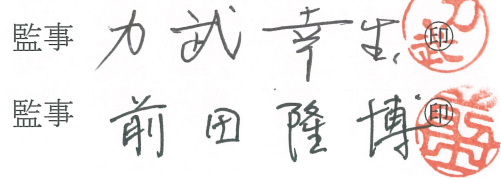 監事 力武幸生 ㊞
監事 前田隆博 ㊞